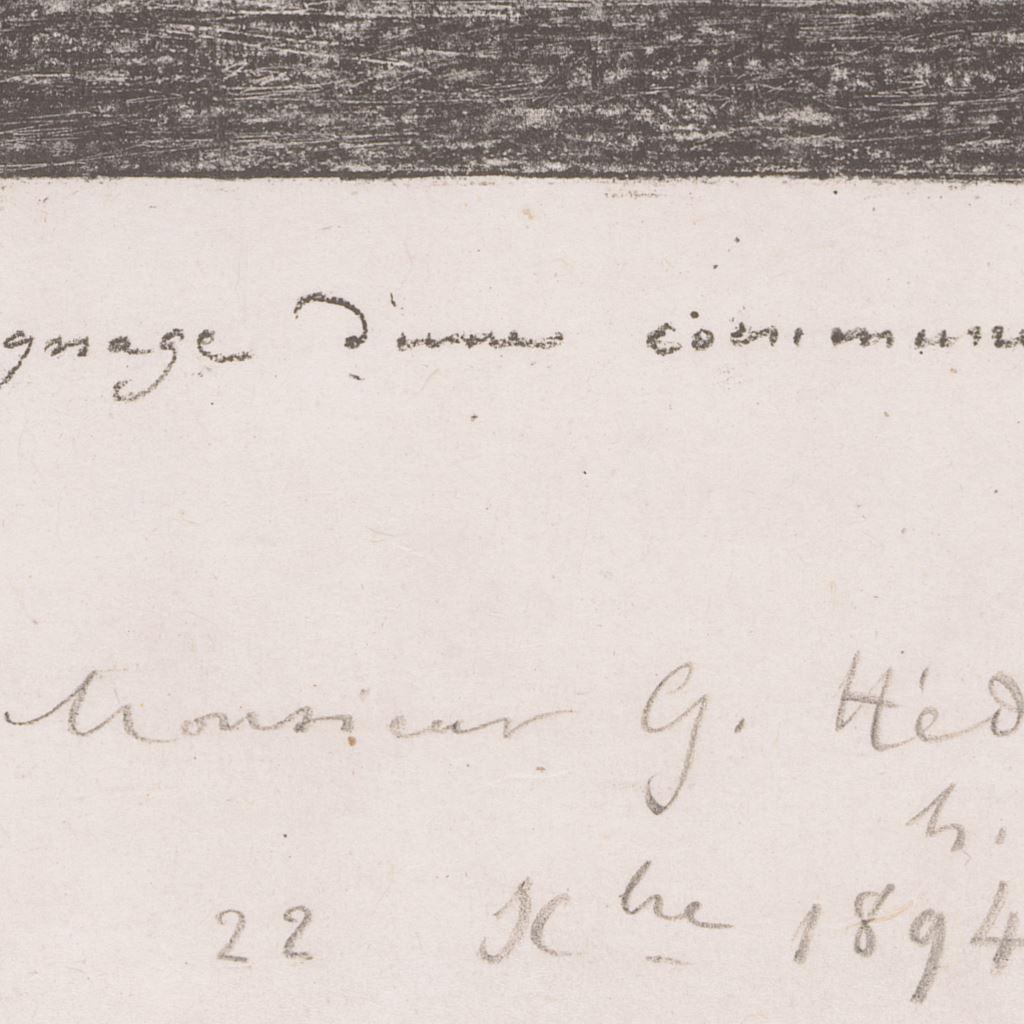 gnage d'une commune
Monsieur G. Héd
h.
22 Xbre 1894